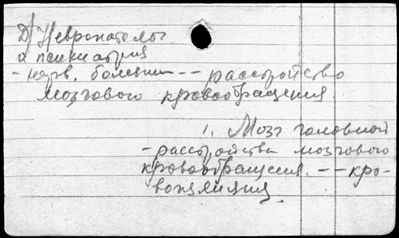 Д/ Невропатолог
и психиатрия
- нерв. болезни -- расстройство
мозгового кровообращения.
1. Мозг головной
- расстройства мозгового
кровообращения. -- кро-
воизлияция.